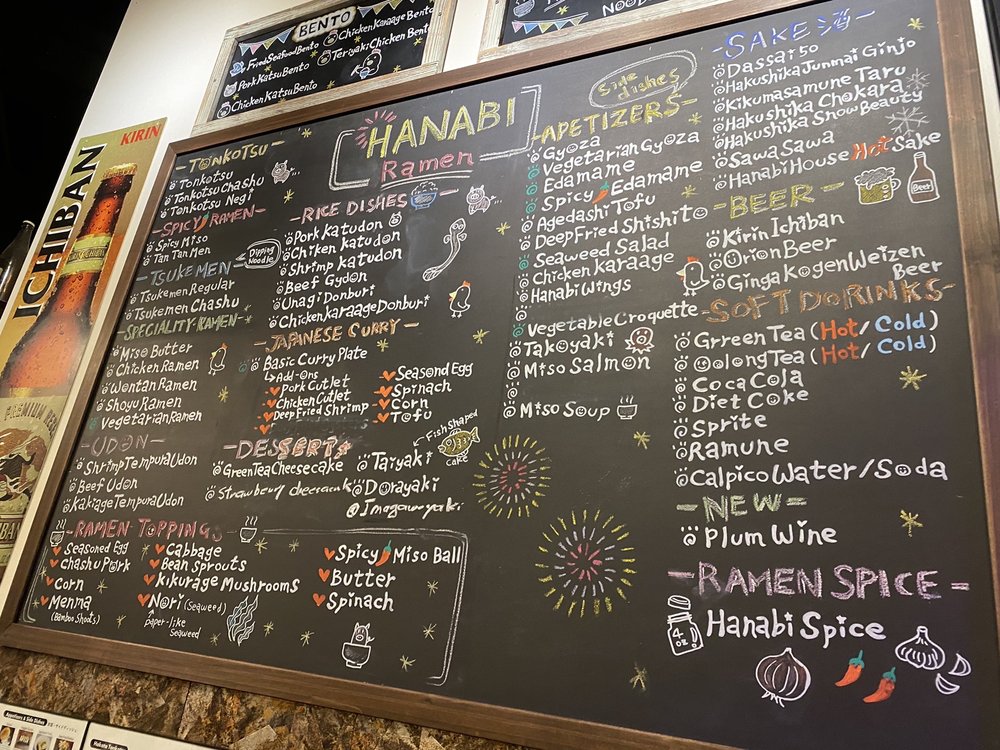 BENTO
FriedSeafoodBento
PorkKatsuBento
ChickenKatsuBento
ChickenKaraageBento
TeriyakiChicken Bent
KIRIN
ICHIBAN
HANABI
Ramen
-TONKOTSU
Tonkotsu
TonkotsuChashu
Tonkotsu Negi
-SPICY RAMEN-
Spicy Miso
Tan Tan Men
-TSUKEMEN-
Dipping
Noodle
Tsukemen Regular
Tsukemen Chashu
-SPECIALITY-RAMEN-
Miso Butter
Chicken Ramen
Wontan Ramen
Shoyu Ramen
VegetarianRamen
-UDON-
ShrimpTempuraUdon
Beef Udon
KakiageTempuraUdon
-RICE DISHES-
Pork Katudon
Chiken Katudon
Shrimp Katudon
Beef Gydon
Unagi Donburi
ChickenKaraageDonburi
-JAPANESE CURRY-
Basic Curry Plate
Add-Ons
Pork Cutlet
Chicken Cutlet
Deep Fried Shrimp
Seasond Egg
Spinach
Corn
Tofu
-DESSERT
GreenTeaCheesecake
Strawberry cheesecak
Taiyaki
Dorayaki
Imagawayaki
Fish Shaped
Cake
-RAMEN TOPPING
Seasoned Egg
Chashu Pork
Corn
Menma
(Bamboo Shoots)
Cabbage
Bean Sprouts
Kikurage Mushrooms
Nori (Seaweed)
paper-like
Seaweed
Spicy Miso Ball
Butter
Spinach
Side
dishes
-APETIZERS-
Gyoza
Vegetarian Gyoza
Edamame
Spicy Edamame
Agedashi Tofu
Deep Fried Shishito
Seaweed Salad
Chicken Karaage
Hanabi Wings
VegetableCroquette
Takoyaki
Miso Salmon
Miso Soup
-SAKE 酒-
Dassai 50
Hakushika Junmai Ginjo
Kikumasamune Taru
Hakushika Chokara
Hakushika SnowBeauty
Sawa Sawa
Hanabi House Hot Sake
-BEER-
Beer
Kirin Ichiban
Orion Beer
Ginga Kogen Weizen
Beer
-SOFT DORINKS-
Grreen Tea (Hot/Cold)
Oolong Tea (Hot/Cold)
Coca Cola
Diet Coke
Sprite
Ramune
Calpico Water/Soda
-NEW-
Plum Wine
-RAMEN SPICE-
4
oz
Hanabi Spice
Appetizers & Side Dishes